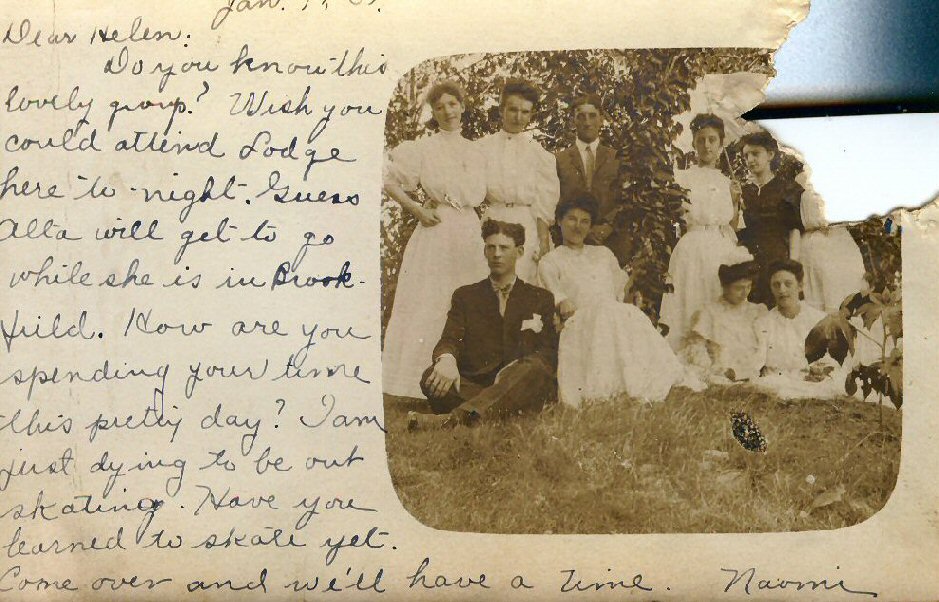 Jan.
Dear Helen.
Do you know this
lovely group? Wish you
could attend Lodge
here to-night. Guess
Alta will get to go
while she is in Brook-
field. How are you
spending your time
this pretty day? I am
just dying to be out
skating. Have you
learned to skate yet.
Come over and we'll have a time. Naomi